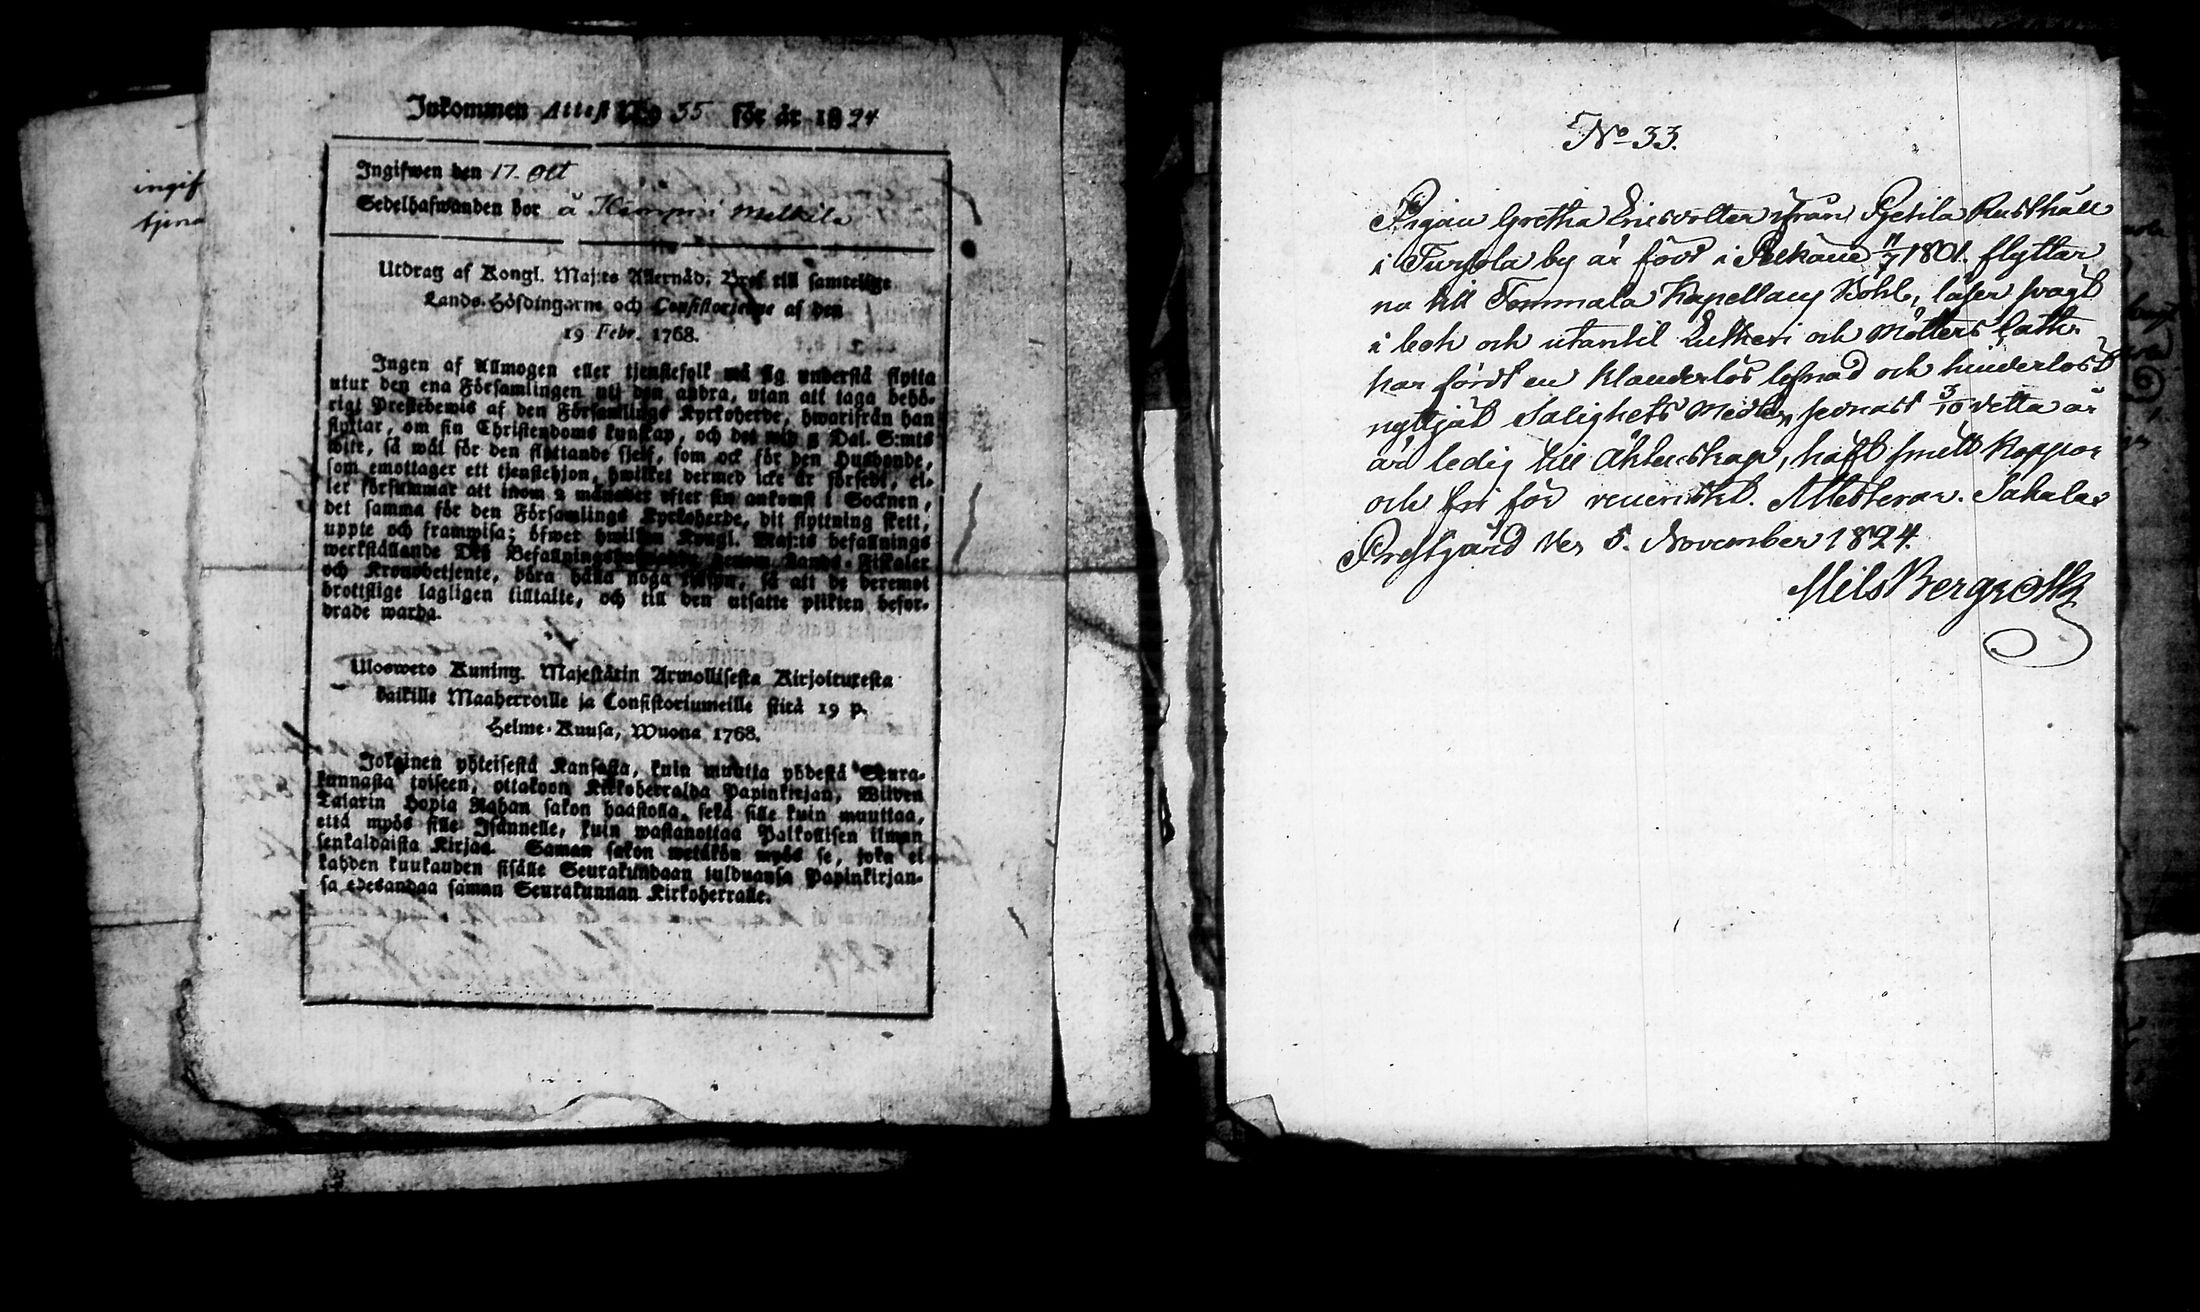 ingif
tjena
Inkommen Attest No 35 för år 1824
Ingifwen den 17. Oct
Sedelhafwanden bor å Melkila
Utdrag af Kongl. Maj:ts Allernåd. Bref till samtelige
Lands-Höfdingarne och Consistorierne af den
19 Febr. 1768.
Ingen af Allmogen eller tjenstefolk må sig understå flytta
utur den ena Församlingen uti den andra, utan att taga behö-
rigt Prestebewis af den Församlings Kyrkoherde, hwarifrån han
flyttar, om sin Christendoms kunskap, och det wid 2 Dal. S:mts
wite, så wäl för den flyttande sjelf, som ock för den Husbonde,
som emottager ett tjenstehjon, hwilket dermed icke är försedt, el-
ler försummar att inom 2 månader efter sin ankomst i Socknen,
det samma för den Församlings Kyrkoherde, dit flyttning skett,
uppte och framwisa; öfwer hwilken Kongl. Maj:ts befallnings
werkställande Des Befallningshafwande, genom Lands-Fiskaler
och Kronobetjente, böra hålla noga tilsyn, så att de deremot
brottslige lagligen tilltalte, och till den utsatte plikten befor-
drade warda.
Ulosweto Kuning. Majestätin Armollisesta Kirjoituxesta
kaikille Maaherroille ja Consistoriumeille siitä 19 p.
Helme-Kuusa, Wuona 1768.
Jokainen yhteisestä Kansasta, kuin muutta yhdestä Seura-
kunnasta toiseen, ottakoon Kirkoherralda Papinkirjan, Wiiden
Talarin Hopia Rahan sakon haastolla, sekä sille kuin muuttaa,
että myös sille Isännelle, kuin wastanottaa Palkollisen ilman
senkaldaista Kirjaa. Saman sakon wetäkön myös se, joka ei
kahden kuukauden sisälle Seurakundaan tulduansa Papinkirjan-
sa edesandaa saman Seurakunnan Kirkoherralle.
No 33.
Pigan Gretha Ericsdotter ifrån Pjetila Rusthåll
i Turjola by är född i Pelkäne 11/7 1801. flyttar
nu till Tommala Kapellans Bohl, läser svagt
i bok och utantil Lutheri och Möllers Cathr.
har fördt en klanderlös lefnad och hinderlöst
nyttjat Salighets Medlen, sednast 3/10 detta år
är ledig till Äktenskap, haft smitt koppor
och fri för veneriskt. Attesterar. Sahalax
Prestgård den 5. November 1824.
Nils Bergroth